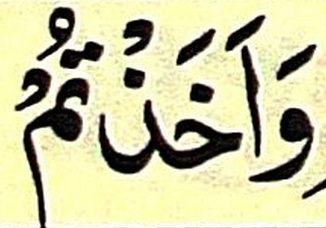 وَاَخَذْتُمْ